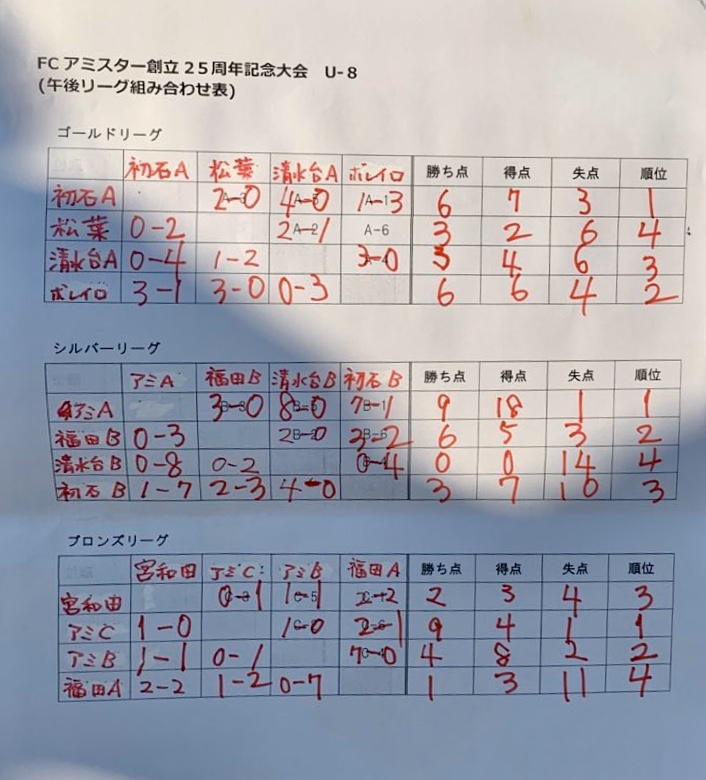 FCアミスター創立25周年記念大会 U-8
(午後リーグ組み合わせ表)
ゴールドリーグ
初石A 松葉 清水台A ボレイロ 勝ち点 得点 失点 順位
初石A 2-0 4-0 1-3 6 7 3 1
松葉 0-2 2-1 A-6 3 2 6 4
清水台A 0-4 1-2 3-0 3 4 6 3
ボレイロ 3-1 3-0 0-3 6 6 4 2
シルバーリーグ
アミA 福田B 清水台B 初石B 勝ち点 得点 失点 順位
アミA 3-0 8-0 7-1 9 18 1 1
福田B 0-3 2-0 3-2 6 5 3 2
清水台B 0-8 0-2 0-4 0 0 14 4
初石B 1-7 2-3 4-0 3 7 10 3
ブロンズリーグ
宮和田 アミC アミB 福田A 勝ち点 得点 失点 順位
宮和田 0-1 1-1 2-2 2 3 4 3
アミC 1-0 1-0 2-1 9 4 1 1
アミB 1-1 0-1 7-0 4 8 2 2
福田A 2-2 1-2 0-7 1 3 11 4